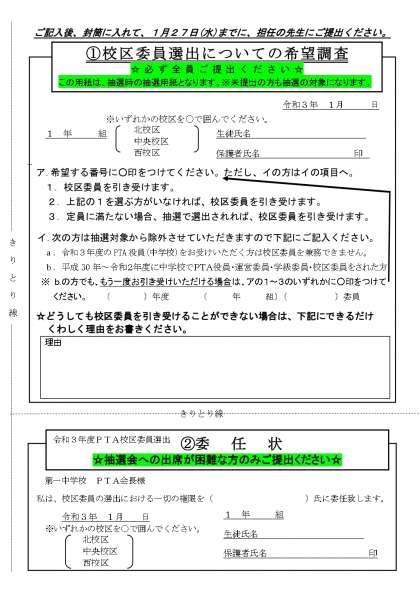 ご記入後、封筒に入れて、1月27日(水)までに、担任の先生にご提出ください。
①校区委員選出についての希望調査
☆必ず全員ご提出ください☆
この用紙は、抽選時の抽選用紙となります。※未提出の方も抽選の対象になります。
令和3年 1月 日
※いずれかの校区を○で囲んでください。
1 年 組
北校区
中央校区
西校区
生徒氏名
保護者氏名 印
ア.希望する番号に○印をつけてください。ただし、イの方はイの項目へ。
1. 校区委員を引き受けます。
2. 上記の1を選ぶ方がいなければ、校区委員を引き受けます。
3. 定員に満たない場合、抽選で選出されれば、校区委員を引き受けます。
イ.次の方は抽選対象から除外させていただきますので下記にご記入ください。
a. 令和3年度のPTA役員(中学校)をお受けいただく方は校区委員を兼務できません。
b. 平成30年~令和2年度に中学校でPTA役員・運営委員・学級委員・校区委員をされた方
※ b.の方でも、もう一度お引き受けいただける場合は、アの1~3のいずれかに○印をつけて
ください。 ( )年度 ( 年 組) ( )委員
☆どうしても校区委員を引き受けることができない場合は、下記にできるだけ
くわしく理由をお書きください。
理由
きりとり線
きりとり線
令和3年度PTA校区委員選出 ②委 任 状
☆抽選会への出席が困難な方のみご提出ください☆
第一中学校 PTA会長様
私は、校区委員の選出における一切の権限を( )氏に委任致します。
令和3年 1月 日
1 年 組
※いずれかの校区を○で囲んでください。
北校区
中央校区
西校区
生徒氏名
保護者氏名 印